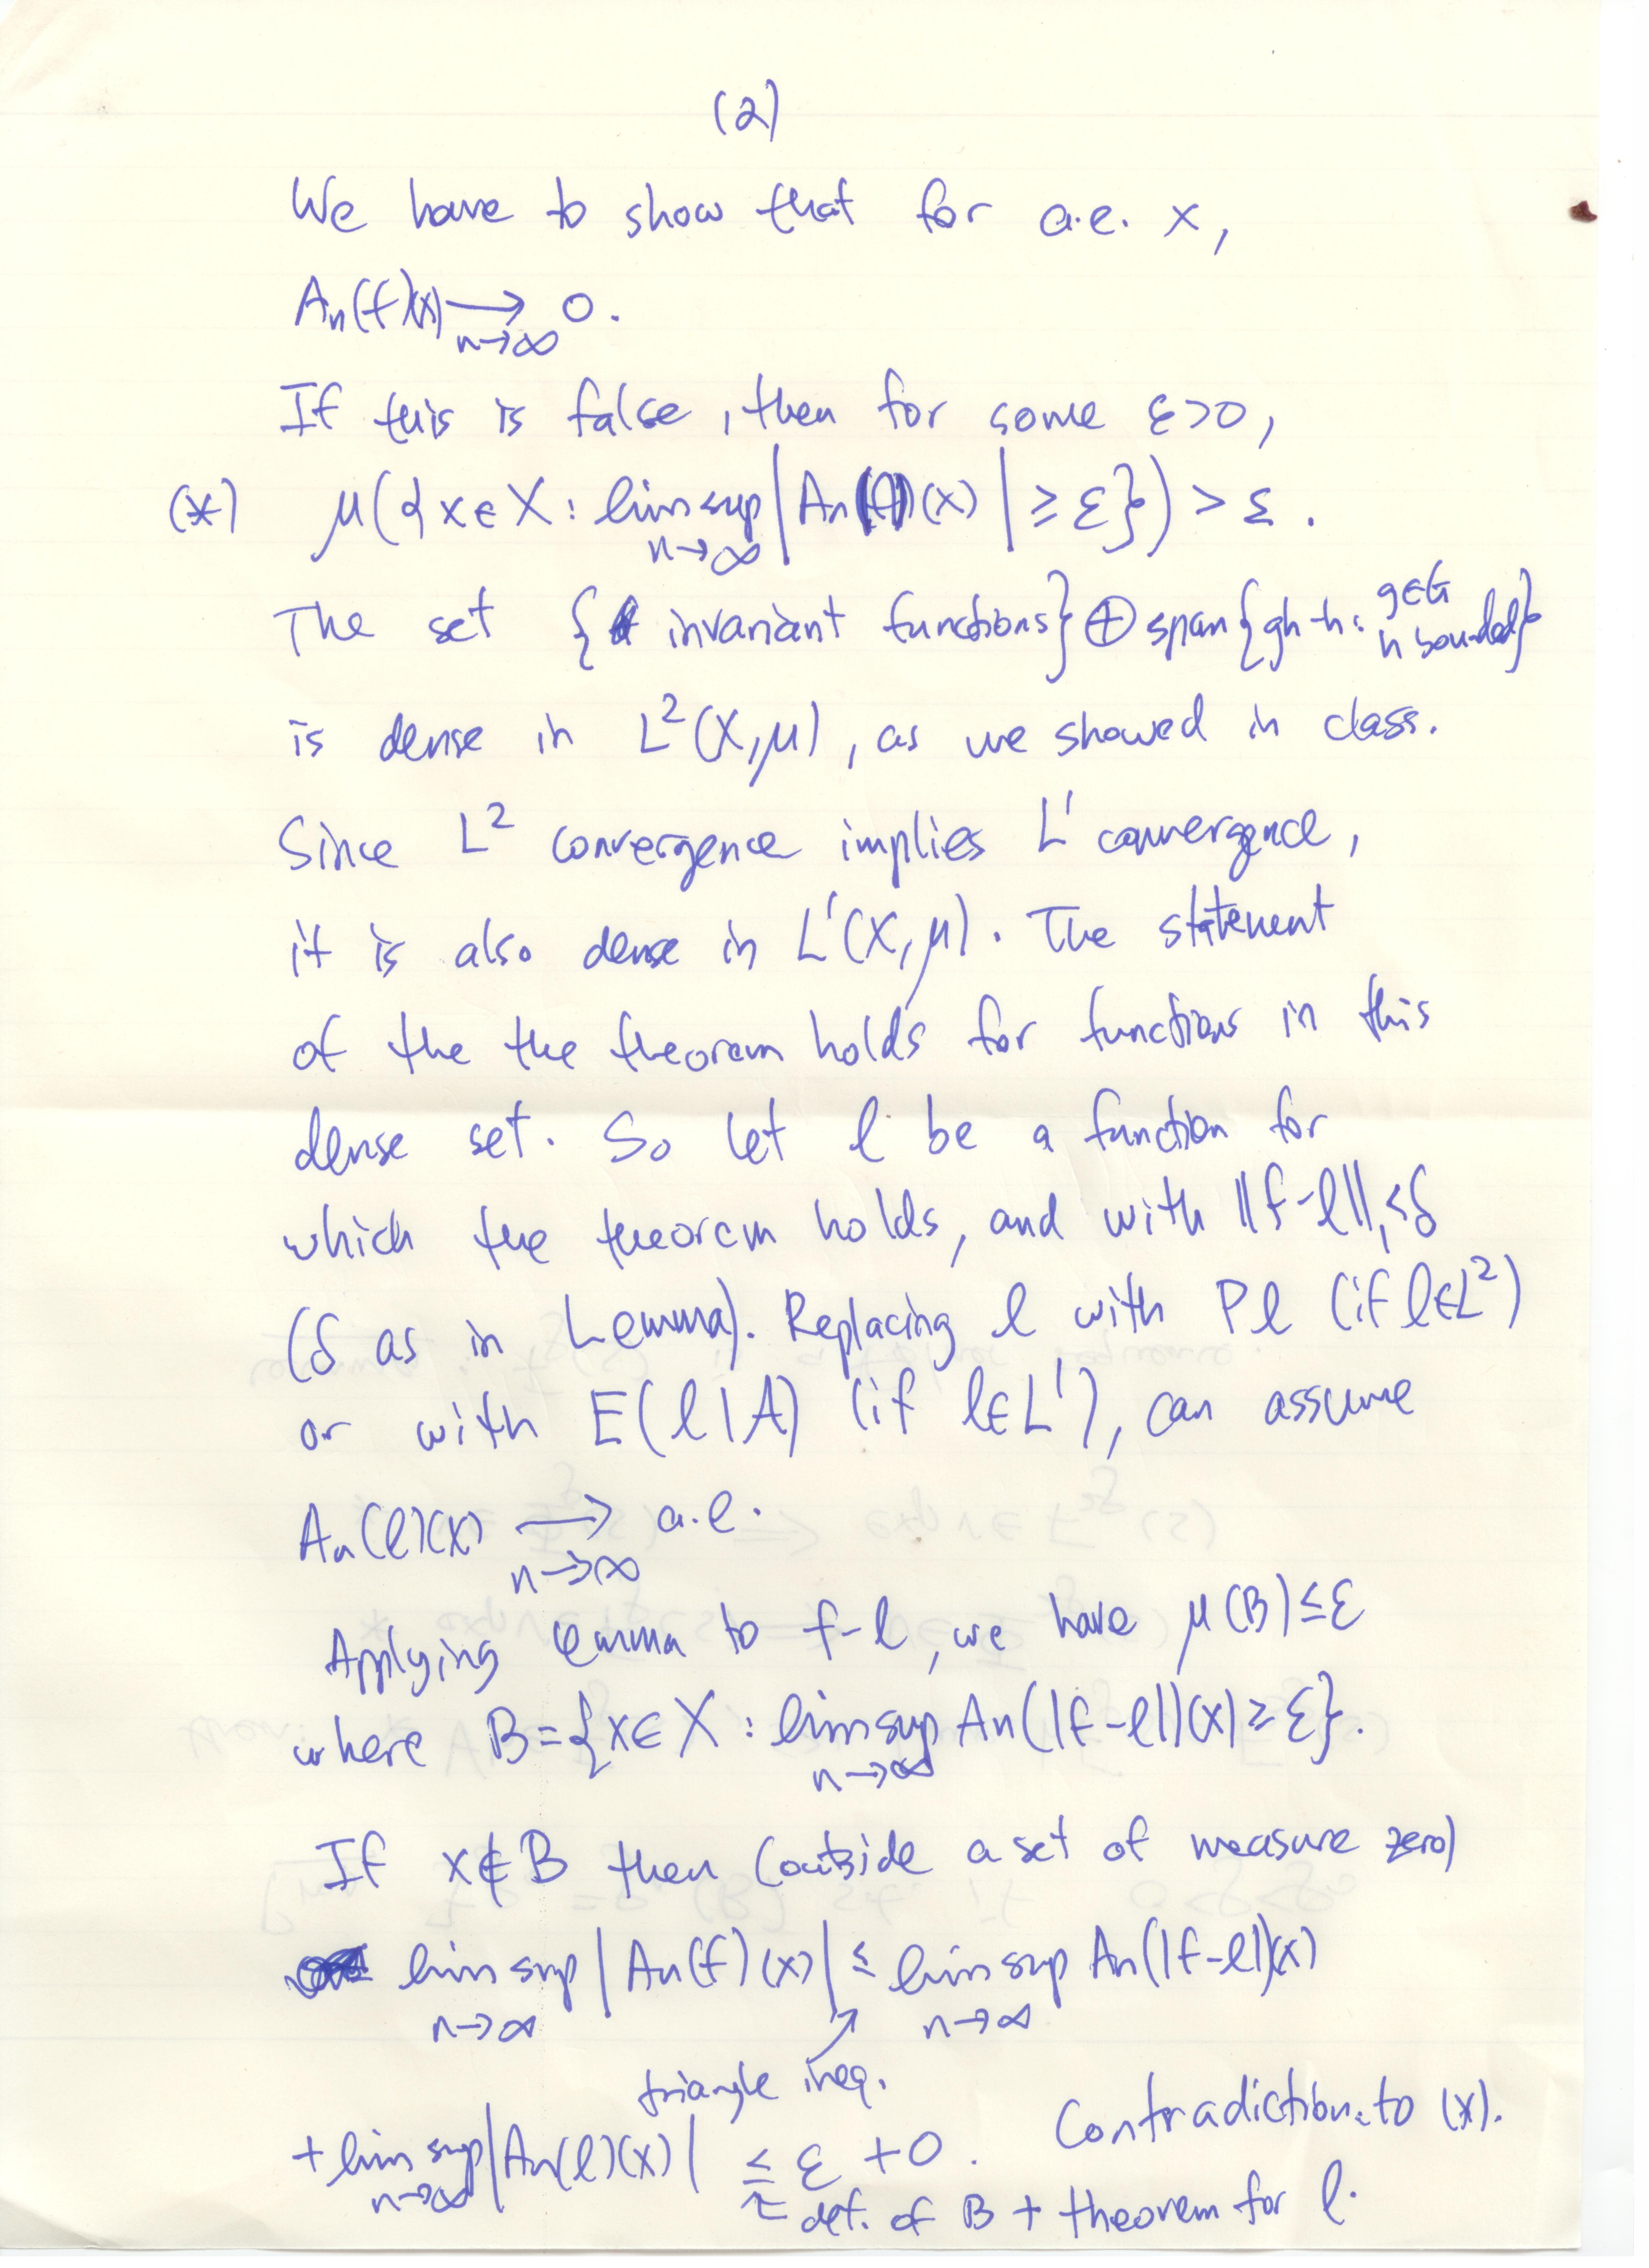 (2)
We have to show that for a.e. x,
An(f)(x) ⟶ 0.
n→∞
If this is false, then for some ε>0,
(*) μ({x∈X: limsup |An(f)(x)| ≥ ε}) > ε.
n→∞
The set {invariant functions} ⊕ span{gh-h: g∈G
h bounded}
is dense in L²(X,μ), as we showed in class.
Since L² convergence implies L¹ convergence,
it is also dense in L¹(X,μ). The statement
of the the theorem holds for functions in this
dense set. So let ℓ be a function for
which the theorem holds, and with ||f-ℓ||₁<δ
(δ as in Lemma). Replacing ℓ with Pℓ (if ℓ∈L²)
or with E(ℓ|A) (if ℓ∈L¹), can assume
An(ℓ)(x) ⟶ a.e.
n→∞
Applying lemma to f-ℓ, we have μ(B)≤ε
where B={x∈X: limsup An(|f-ℓ|)(x)≥ε}.
n→∞
If x∉B then (outside a set of measure zero)
limsup |An(f)(x)| ≤ limsup An(|f-ℓ|)(x)
n→∞ n→∞
triangle ineq.
+limsup|An(ℓ)(x)| ≤ ε+0. Contradiction to (*).
n→∞
def. of B + theorem for ℓ.